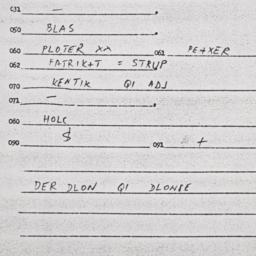 C31 —
050 BLAS
060 PLOTER XX 061 PE+XER
062 FATRIK+T = STRUP
070 KENTIK QI ADJ
071 —
080 HOLC
090 $ 091 +
DER DLON QI DLONSE